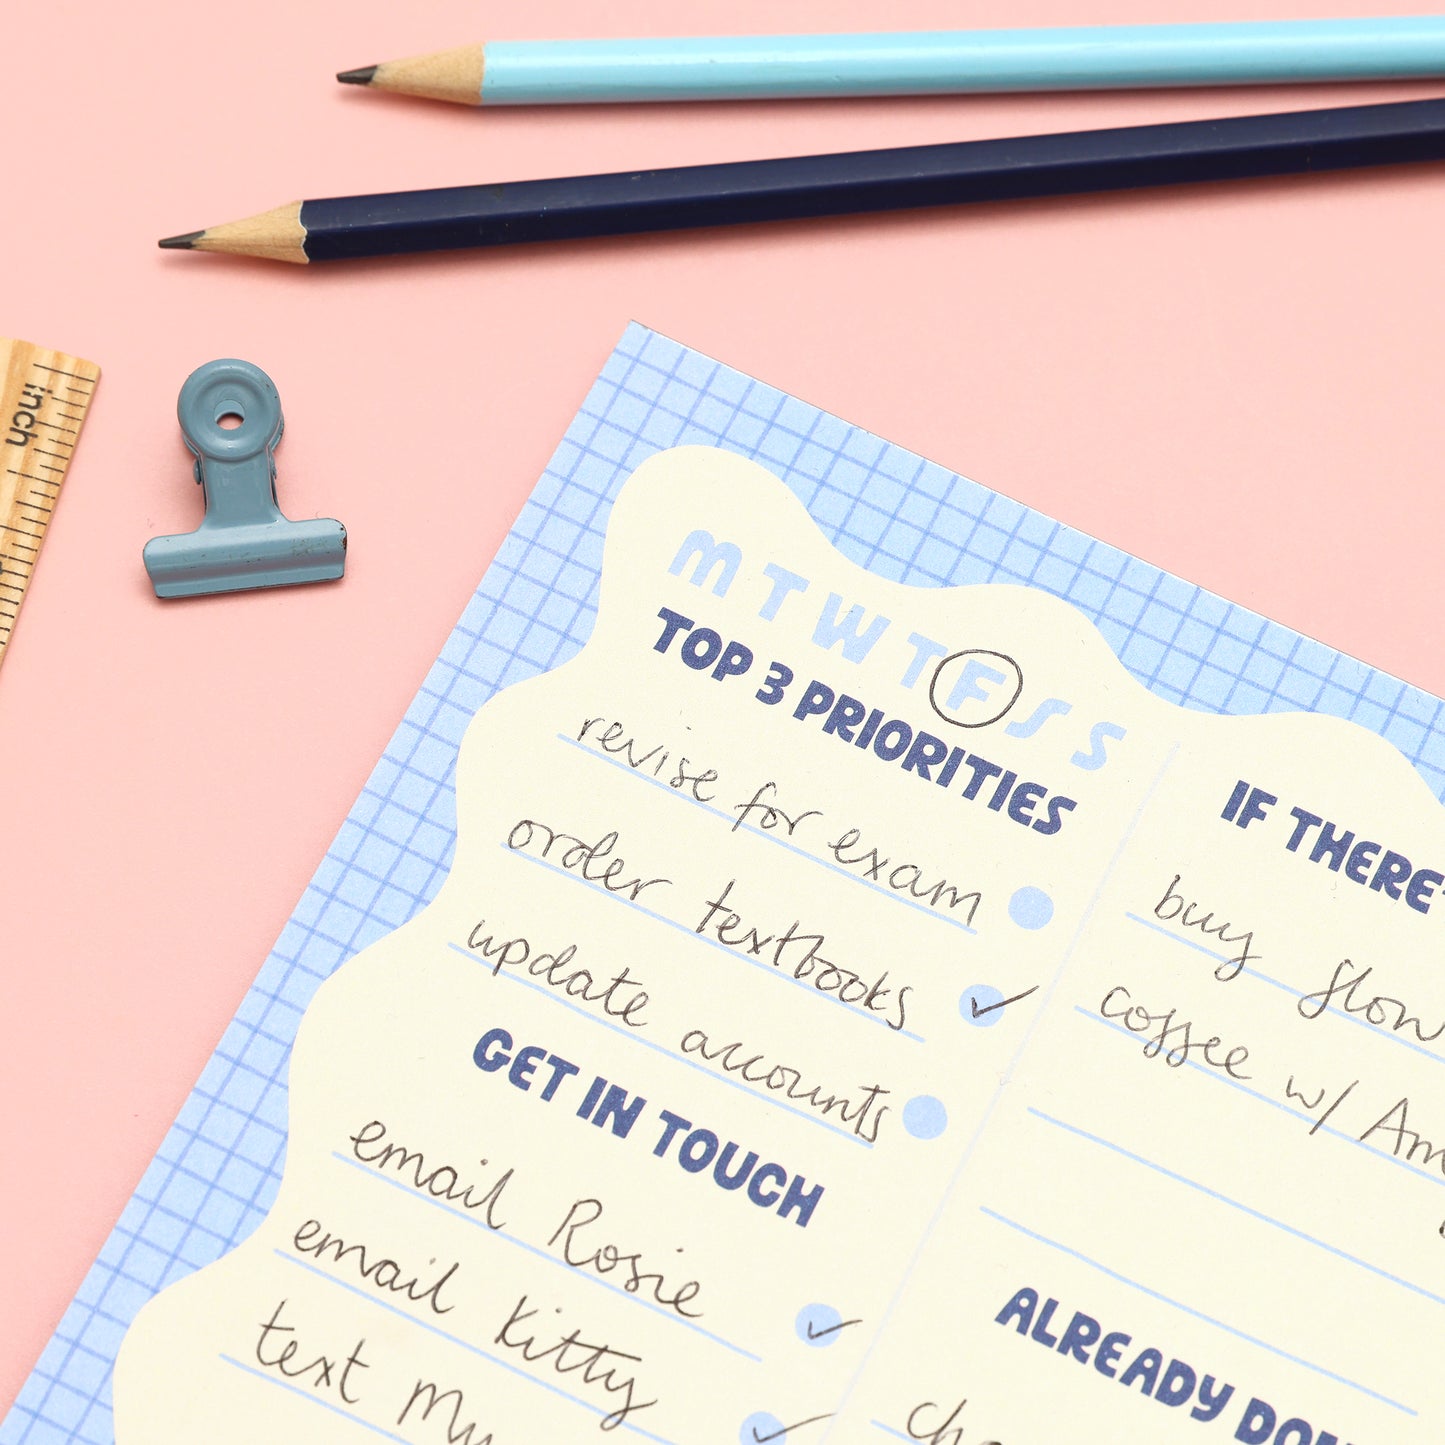 inch
M T W T F S S
TOP 3 PRIORITIES
revise for exam
order textbooks
update accounts
GET IN TOUCH
email Rosie
email Kitty
text
IF THERE'
buy flow
coffee w/
ALREADY